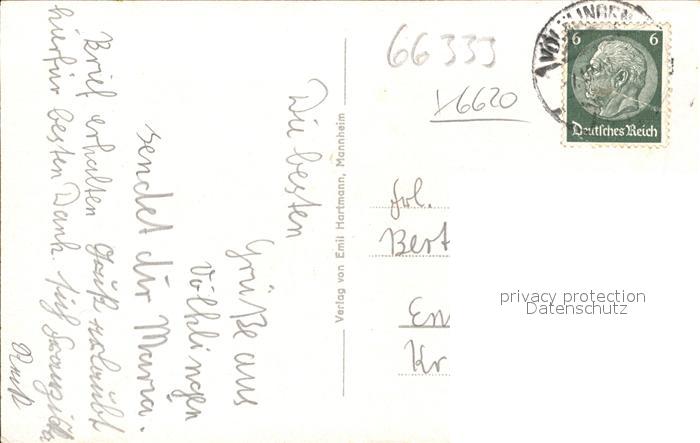 Die besten
Grüße aus
Völklingen
sendet dir Maria.
Brief erhalten
hierfür besten Dank.
66333
6620
VÖLKLINGEN
6 6
Deutsches Reich
Verlag von Emil Hartmann, Mannheim
Frl.
Bert
En
Kr
privacy protection
Datenschutz